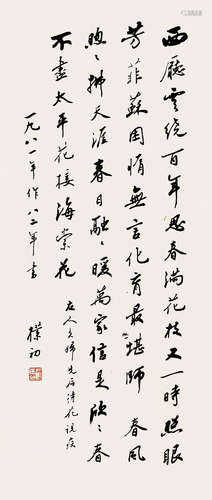 西廳雲繞百年思春滿花枝又一時照眼
芳菲蘇困惰無言化育最堪師 春風
煦〻拂天涯春日融〻暖萬家信是欣〻春
不盡太平花接海棠花
一九八一年作八二年書
友人夫婦先后詩花
樸初